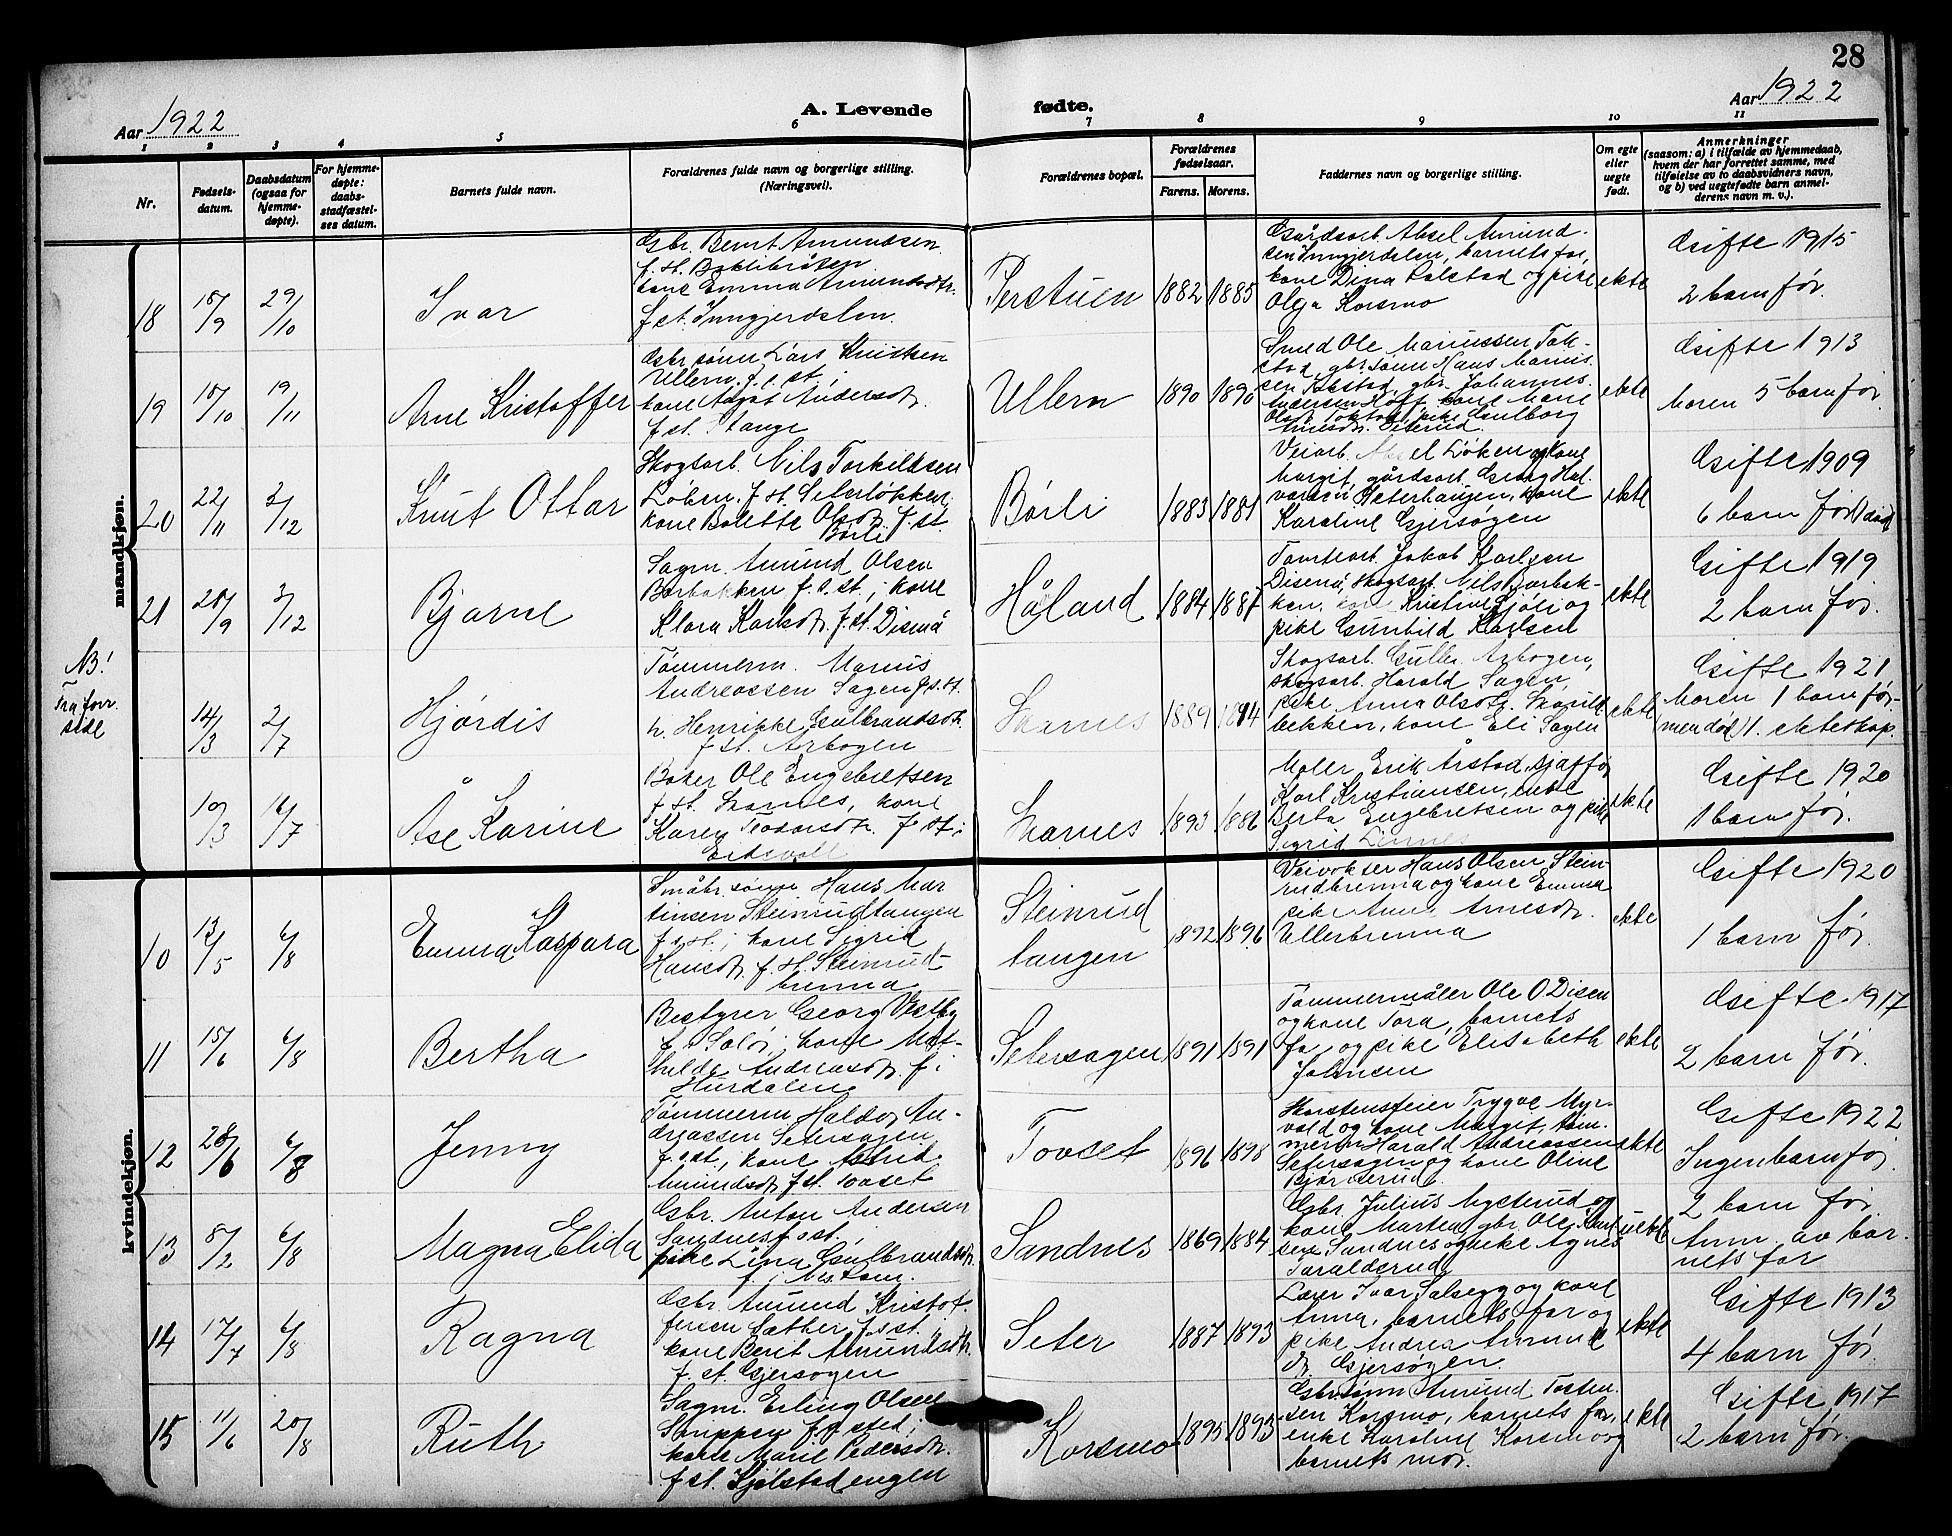 28
Aar 1922
A. Levende fødte.
Aar 1922
1 2 3 4 5 6 7 8 9 10 11
Nr.
Fødsels-
datum.
Daabsdatum
(ogsaa for
hjemme-
døpte).
For hjemme-
døpte:
daabs-
stadfæstel-
ses datum.
Barnets fulde navn.
Forældrenes fulde navn og borgerlige stilling.
(Næringsvei).
Forældrenes bopæl.
Forældrenes
fødselsaar.
Farens. Morens.
Faddernes navn og borgerlige stilling.
Om egte
eller
uegte
født.
Anmerkninger
(saasom: a) i tilfælde av hjemmedaab,
hvem der har forrettet samme, med
tilføielse av to daabsvidners navn,
og b) ved uegtefødte barn anmel-
derens navn m. v.).
mandkjøn.
18
10/9
29/10
Ivar
Gbr. Bernt Amundsen
f. st. Baklibråten
kone Emma Amundsdtr.
f. st. Inngjerdslen.
Perstuen
1882 1885
Gårdsarb. Aksel Amund-
sen Inngjerdalen, barnets far,
kone Dina Palstad og pike
Olga Korsmo
ekte
Gifte 1915
2 barn før.
19
10/10
19/11
Arne Kristoffer
Gbr sønn Lars Knutsen
Ullern f. s. st.;
kone Andersdtr.
f. st. Stange
Ullern
1890 1890
Smed Ole Mariussen Tok-
stad, gbr. sønn Hans Marius-
sen Tokstad, gbr. Johannes
Andersen Hoff, kone Marie
pike Gulborg
ekte
Gifte 1913
Moren 5 barn før
20
22/11
3/12
Knut Ottar
Skogsarb. Nils Torkildsen
Løken f. st. Seterløkken,
kone Bolette Olsdtr. f. st.
Børli
Børli
1883 1881
Veiarb. Aksel Løken og kone
Margit, gårdsarb. Georg Hal-
vorsen Seterhaugen, kone
Karoline Gjersøgen
ekte
Gifte 1909
6 barn før (1 død)
21
20/9
3/12
Bjarne
Sagm. Amund Olsen
Børbakken f. s. st.; kone
Klara Karlsdtr. f. st. Disenå
Håland
1884 1887
Tomtearb. Jakob Karlsen
Disenå, skogsarb. Nils Børbak-
ken, kone Kristine Sjøli og
pike Gunhild Karlsen
ekte
Gifte 1919
2 barn før.
NB!
Fra forr.
side
14/3
2/7
Hjørdis
Tømmerm. Marius
Andreassen Sagen f. s. st.
h. Henrikke Gulbrandsdtr.
f. st. Arbogen
Skarnes
1889 1894
Skogsarb. Gullr. Arbogen,
skogsarb. Harald Sagen,
pike Anna Olsdtr.
bekken, kone Eli Sagen
ekte
Gifte 1921
Moren 1 barn før
men død 1. ekteskap.
10/3
16/7
Åse Karine
Baker Ole Engebretsen
f. st. Skarnes, kone
Karen Teodorsdtr. f. st.;
Eidsvoll
Skarnes
1893 1886
Maler Erik Årstad, sjaffør
Karl Kristiansen, enke
Berta Engebretsen og pike
Sigrid
ekte
Gifte 1920
1 barn før.
kvindekjøn.
10
13/5
6/8
Emma Kaspara
Småbr. sønn Hans Mar-
tinsen Steinrudtangen
f. s. st.; kone Sigrid
Hansdtr. f. st. Steinrud-
brenna
Steinrud
tangen
1892 1896
Veivokter Hans Olsen Stein-
rudbrenna og kone Emma
pike Anna Arnesdtr.
Ullerbrenna
ekte
Gifte 1920
1 barn før.
11
15/6
6/8
Bertha
Bestyrer Georg Vestby
f. i Solør; kone Mat-
hilde Andreasdtr. f. i
Hurdalen
Setersagen
1891 1891
Tømmermåler Ole O Disen
og kone Tora, barnets
far og pike Elisabeth
Johnsen
ekte
Gifte 1917
2 barn før.
12
28/6
6/8
Jenny
Tømmerm Haldor An-
dreassen Setersagen
f. s. st., kone Astrid
Amundsdtr. f. st. Tovset
Tovset
1896 1898
Skorstensfeier Trygve Myr-
vold og kone Margit, tøm-
merm Harald Andreassen
Setersagen og kone Oline
Bjørnerud
ekte
Gifte 1922
Ingen barn før.
13
8/2
6/8
Magna Elida
Gbr. Anton Andersen
Sandnes f. s. st.,
pike Lina Gulbrandsdtr.
f. i
Sandnes
1869 1884
Gbr. Julius Mysterud og
kone Marten, gbr. Ole Knut-
sen Sandnes og pike Agnes
Taralderud
uekte
2 barn før
Anm. av bar-
nets far
14
17/7
6/8
Ragna
Gbr. Amund Kristof-
fersen Sæther f. s. st.
kone Berit Amundsdtr.
f. st. Gjersøgen
Seter
1887 1893
Lærer Ivar Salsegg og kone
Anna, barnets far og
pike Andrea Amund
dr. Gjersøgen.
ekte
Gifte 1913
4 barn før
15
11/6
20/8
Ruth
Sagm. Erling Olsen
f. s. sted;
kone Marie Pedersdtr.
f. st. Kjølstadengen
Korsmo
1895 1893
Gbr sønn Amund Tosten-
sen Korsmo, barnets far,
enke Karoline Korsmo og
barnets mor.
ekte
Gifte 1917
2 barn før.